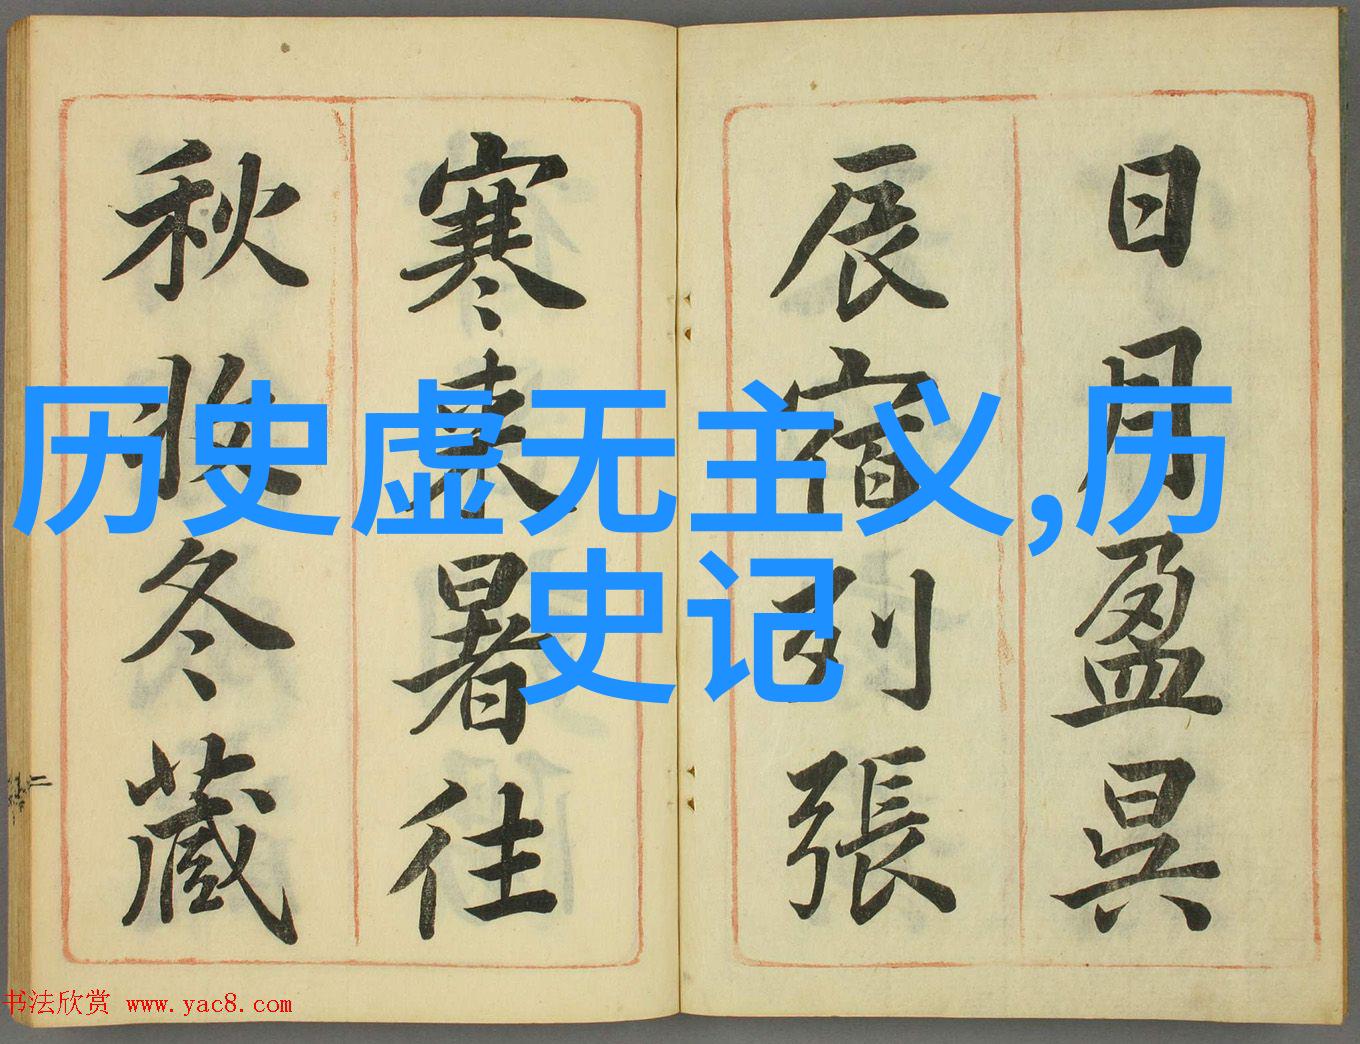 日月盈昃
辰宿列張
寒来暑往
秋收冬藏
历史虚无主义,历
史记
书法欣赏 www.yac8.com